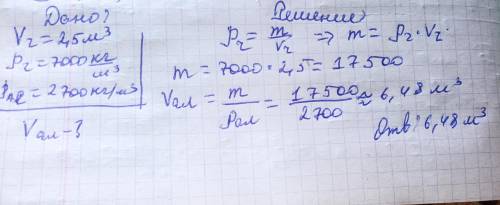 Дано:
V₂ = 2,5 м³
ρ₂ = 7000 кг/м³
ρал = 2700 кг/м³
Vал - ?
Решение:
ρ₂ = m/V₂ => m = ρ₂ · V₂
m = 7000 · 2,5 = 17500
Vал = m/ρал = 17500/2700 ≈ 6,48 м³
Отв: 6,48 м³